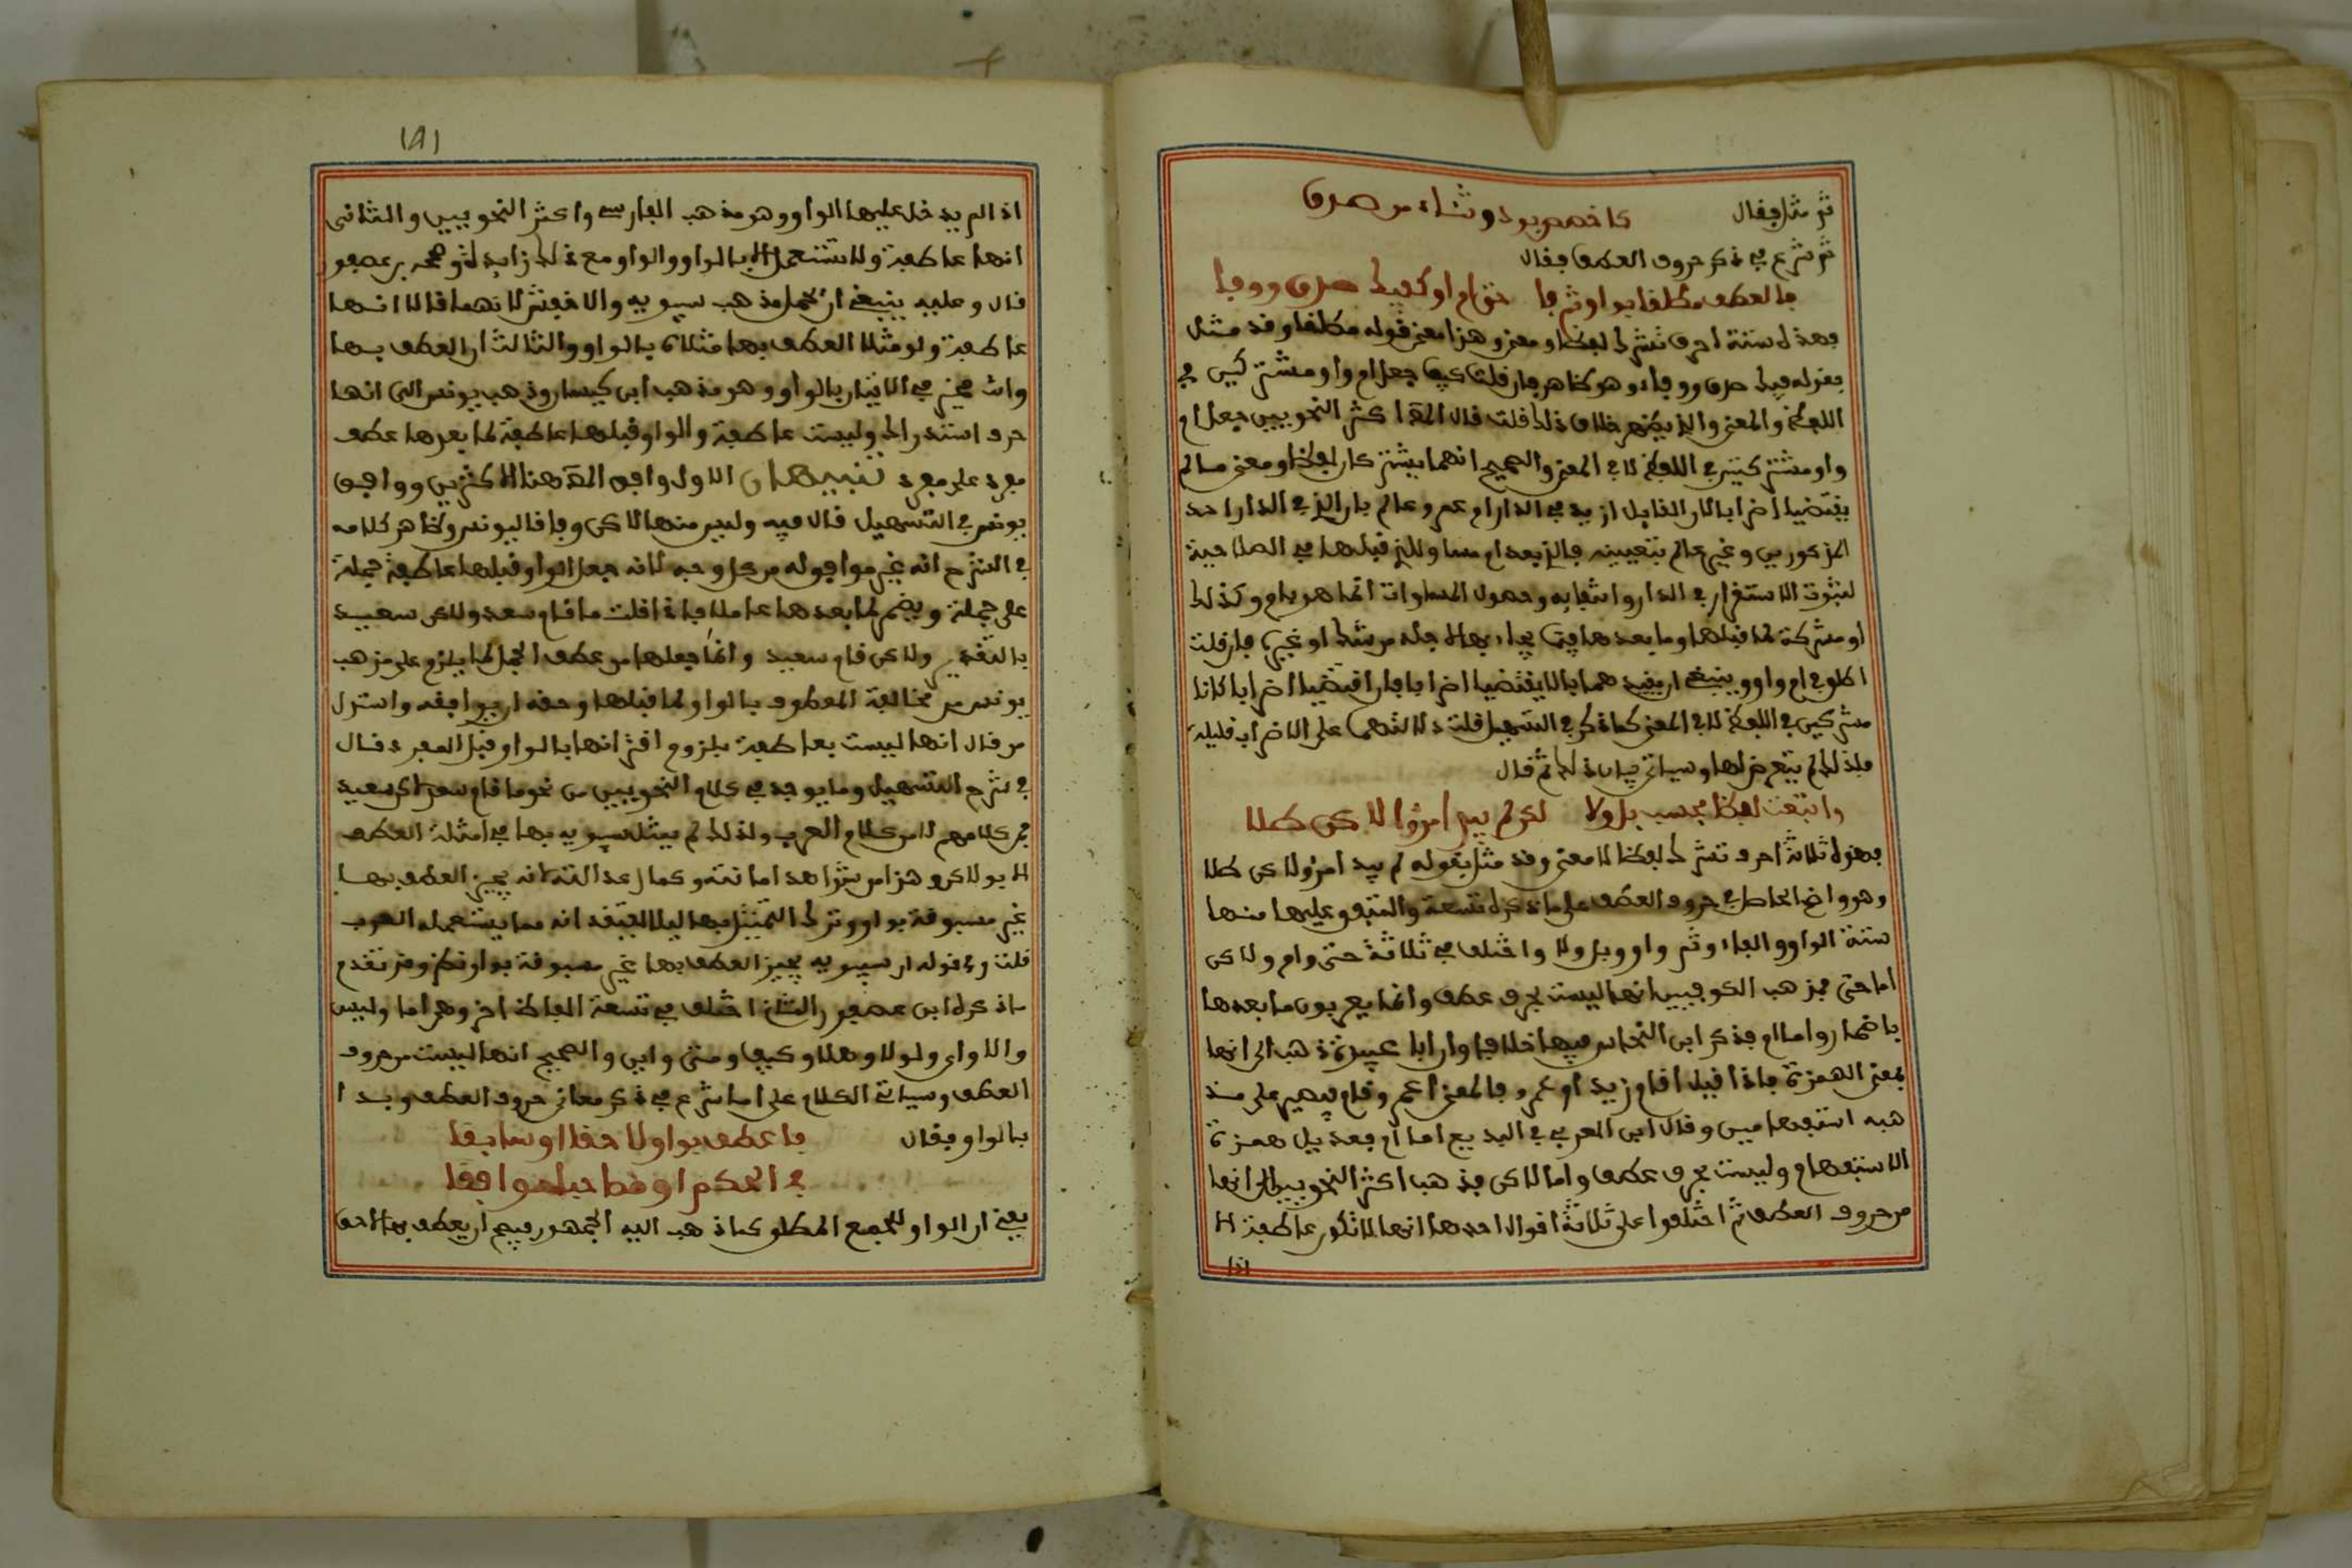 ثم مثل فقال كاخصص بود وثناء من صدق
ثم شرع في ذكر حروف العطف فقال
فالعطف مطلقا بواو ثم فا حتى ام او كفيك صدق ووفا
فهذه ستة احرف تشرك لفظا ومعنى وهذا معنى قوله مطلقا وقد مثل
بقوله فيك صدق ووفاء وهو ظاهر فان قلت كيف جعل ام واو مشتركين في
اللفظ والمعنى والذي يظهر خلاف ذلك قلت قال المص اكثر النحويين جعل ام
واو مشتركتين في اللفظ لا في المعنى والصحيح انهما يشتركان لفظا ومعنى ما لم
يقتضيا اضرابا لان القايل ازيد في الدار ام عمرو عالم بان الذي في الدار احد
المذكورين وغير عالم بتعيينه فالذي بعد ام مساو للذي قبلها في الصلاحية
لثبوت الاستقرار في الدار وانتفايه وحصول المساوات انما هو بام وكذلك
او مشركة لما قبلها وما بعدها فيما يجاء بها لاجله من شك او غيره فان قلت
اطلق ام واو وينبغي ان يقيدهما بالا يقتضيا اضرابا فان اقتضيا اضرابا كانا
مشركين في اللفظ لا في المعنى كما ذكر في التسهيل قلت دلالتهما على الاضراب قليلة
فلذلك لم يتعرض لها وسياتي بيان ذلك ثم قال
واتبعت لفظا فحسب بل ولا لكن لم يبد امرؤا لاكن طلا
فهذه ثلاثة احرف تشرك لفظا لا معنى وقد مثل بقوله لم يبد امرؤ لاكن طلا
وهو واضح الحاصل في حروف العطف على ما ذكره تسعة والمتفق عليها منها
ستة الواو والفاء وثم واو وبل ولا واختلف في ثلاثة حتى وام ولاكن
اما حتى فمذهب الكوفيين انها ليست بحرف عطف وانما يعربون ما بعدها
باضمار واما ام فذكر ابن النحاس فيها خلافا وان ابا عبيدة ذهب الى انها
بمعنى الهمزة فاذا قيل اقام زيد او عمرو فالمعنى اعمرو قام فيصير على مذ
هبه استفهامين وقال ابن العربي في البديع اما ام فعديل همزة
الاستفهام وليست بحرف عطف واما لاكن فذهب اكثر النحويين الى انها
من حروف العطف ثم اختلفوا على ثلاثة اقوال احدها انها لا تكون عاطفة الا
اذا
اذا لم يدخل عليها الواو وهو مذهب الفارسي واكثر النحويين والثاني
انها عاطفة ولا تستعمل الا بالواو والواو مع ذلك زايدة وصححه بن عصفور
قال وعليه ينبغي ان يحمل مذهب سيبويه والاخفش لانهما قالا انها
عاطفة ولو مثلا العطف بها مثلاه بالواو والثالث ان العطف بها
وانت مخير في الاتيان بالواو وهو مذهب ابن كيسان وذهب يونس الى انها
حرف استدراك وليست عاطفة والواو قبلها عاطفة لما بعدها عطف
مفرد على مفرد تنبيهان الاول وافق المص هنا الاكثرين ووافق
يونس في التسهيل قال فيه وليس منها لاكن وفاقا ليونس وظاهر كلامه
في الشرح انه غير موافق له من كل وجه لانه جعل الواو قبلها عاطفة جملة
على جملة ويضمر لما بعدها عاملا فاذا قلت ما قام سعد ولاكن سعيد
بالتقدير ولاكن قام سعيد وانما جعلها من عطف الجمل لما يلزم على مذهب
يونس من مخالفة المعطوف بالواو لما قبلها وحقه ان يوافقه واستدل
من قال انها ليست بعاطفة بلزوم اقترانها بالواو قبل المفرد قال
في شرح التسهيل وما يوجد في كلام النحويين من نحو ما قام سعد لاكن سعيد
فمن كلامهم لا من كلام العرب ولذلك لم يمثل سيبويه بها في امثلة العطف
الا بولاكن وهذا من شواهد امانته وكمال عدالته لانه يجيز العطف بها
غير مسبوقة بواو وترك التمثيل بها ليلا يعتقد انه مما يستعمله العرب
قلت وفي قوله ان سيبويه يجيز العطف بها غير مسبوقة بواو نظر وقد تقدم
ماذكره ابن عصفور والثاني اختلف في تسعة الفاظ اخر وهي اما وليس
والا واي ولولا وهلا وكيف ومتى واين والصحيح انها ليست من حروف
العطف وسياتي الكلام على اما شرع في ذكر معاني حروف العطف وبدا
بالواو فقال فاعطف بواو لاحقا او سابقا
في الحكم او مصاحبا موافقا
يعني ان الواو للجمع المطلق كما ذهب اليه الجمهور فيصح ان يعطف بها لاحق